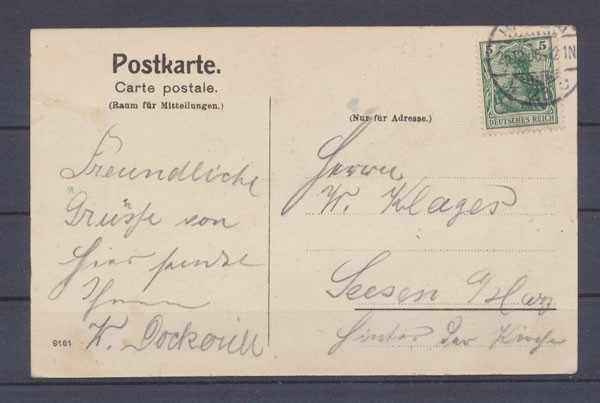 Postkarte.
Carte postale.
(Raum für Mitteilungen.)
(Nur für Adresse.)
5 5
DEUTSCHES REICH
Freundliche
Grüsse von
hier sendet
Ihnen
Herrn
W. Klages
Seesen a/Harz
Hinter der Kirche
9101